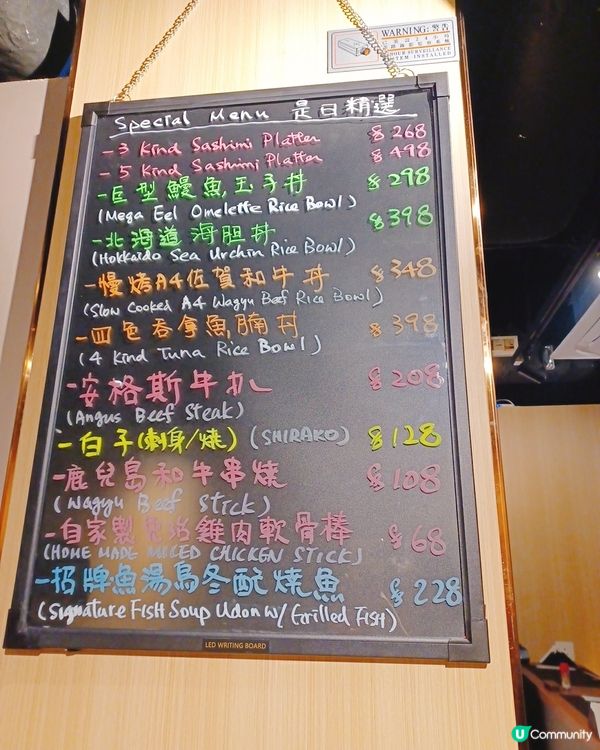 WARNING: 警告
24 HOUR SURVEILLANCE
SYSTEM INSTALLED
Special Menu 是日精選
-3 Kind Sashimi Platter $268
-5 Kind Sashimi Platter $498
-巨型鰻魚玉子丼 $298
(Mega Eel Omelette Rice Bowl)
-北海道海胆丼 $398
(Hokkaido Sea Urchin Rice Bowl)
-慢烤A4佐賀和牛丼 $348
(Slow Cooked A4 Wagyu Beef Rice Bowl)
-四色吞拿魚腩丼 $398
(4 Kind Tuna Rice Bowl)
-安格斯牛扒 $208
(Angus Beef Steak)
-白子(刺身/燒) (SHIRAKO) $128
-鹿兒島和牛串燒 $108
(Wagyu Beef Stick)
-自家製免治雞肉軟骨棒 $68
(HOME MADE MICED CHICKEN STICK)
-招牌魚湯烏冬配燒魚 $228
(Signature FISH Soup Udon w/ Grilled FISH)
LED WRITING BOARD
U Community